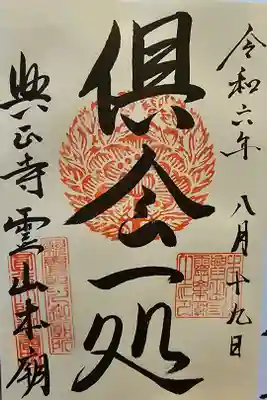 令和六年八月十九日
倶会一処
興正寺霊山本廟